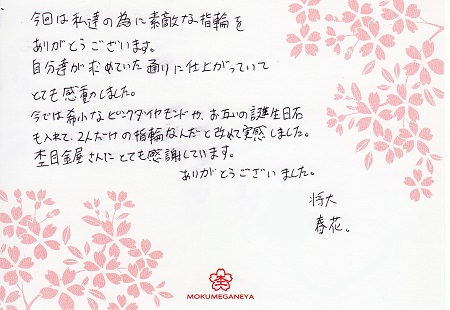 今回は私達の為に素敵な指輪を
ありがとうございます。
自分達が求めていた通りに仕上がっていて
とても感動しました。
今では希少なピンクダイヤモンドや、お互いの誕生日石
も入れて、2人だけの指輪なんだと改めて実感しました。
杢目金屋さんにとても感謝しています。
ありがとうございました。
将大
春花。
MOKUMEGANEYA